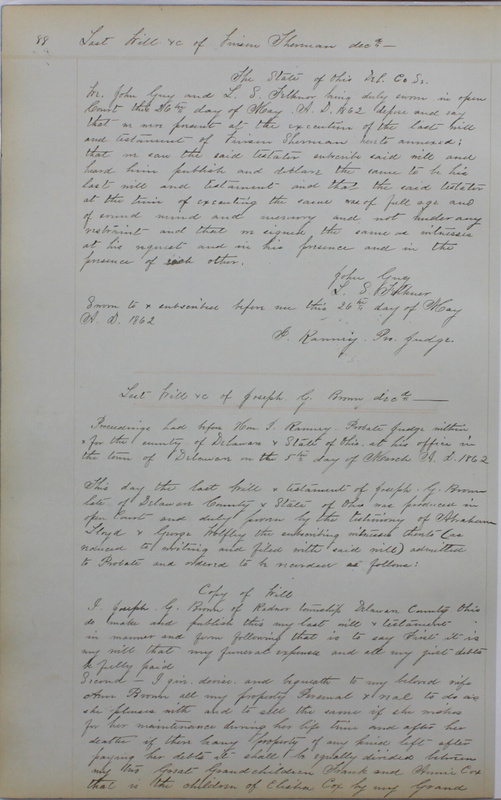 88 Last Will &c of Vinson Sherman decd —
The State of Ohio Del. Co Ss.
We, John Guy and L. S. Felkner being duly sworn in open
Court this 26th day of May A. D. 1862 depose and say
that we were present at the execution of the last will
and testament of Vinson Sherman hereto annexed;
that we saw the said testator subscribe said will and
heard him publish and declare the same to be his
last will and testament and that the said testator
at the time of executing the same was of full age and
of sound mind and memory and not under any
restraint and that we signed the same as witnesses
at his request and in his presence and in the
presence of each other.
John Guy
L. S. Felkner
Sworn to & subscribed before me this 26th day of May
A. D. 1862
Ramney Pro. Judge
Last Will &c of Joseph G. Brown decd —
Proceedings had before Wm Ramney Probate Judge within
& for the county of Delaware & State of Ohio, at his office in
the town of Delaware on the 5th day of March A. D. 1862
This day the last Will & testament of Joseph G. Brown
late of Delaware County & State of Ohio was produced in
open Court and duly proven by the testimony of Abraham
Lloyd & George Wolfley the subscribing witnesses thereto (as
reduced to writing and filed with said will) admitted
to Probate and ordered to be recorded as follows:
Copy of Will
I Joseph G. Brown of Radnor township Delaware County Ohio
do make and publish this my last will & testament
in manner and form following that is to say First it is
my will that my funeral expenses and all my just debts
be fully paid
Second — I give, devise and bequeath to my beloved wife
Ann Brown all my property Personal & real to do as
she pleases with and to sell the same if she wishes
for her maintenance during her life time and after her
death if there be any property of any kind left after
paying her debts it shall be equally divided between
my two Great Grand children Frank and Annie Cox
that is the children of Elisha Cox by my Grand